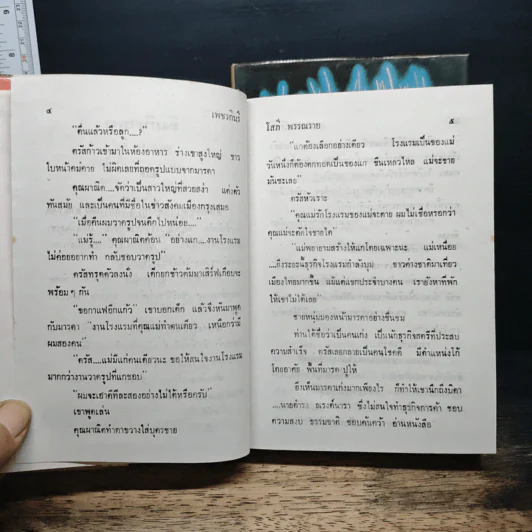 ๔
เพชรกินรี
"ตื่นแล้วหรือลูก....?"
ครัสก้าวเข้ามาในห้องอาหาร ร่างเขาสูงใหญ่ ขาว
ใบหน้าคมคาย ไม่ผิดเลยที่ถอดรูปแบบจากมารดา
คุณผาณิต....จัดว่าเป็นสาวใหญ่ที่สวยสง่า แต่งตัว
ทันสมัย และเป็นคนที่มีชื่อในข่าวสังคมเมืองกรุงเสมอ
"เมื่อคืนผมวาดรูปจนดึกไปหน่อย...."
"แม่รู้...." คุณผาณิตค้อน "อย่างแก....งานโรงแรม
ไม่ค่อยอยากทำ กลับชอบวาดรูป"
ครัสทรุดตัวลงนั่ง เด็กยกข้าวต้มมาเสิร์ฟเกือบจะ
พร้อมๆ กัน
"ขอกาแฟอีกแก้ว" เขาบอกเด็ก แล้วจึงหันมาพูด
กับมารดา "งานโรงแรมที่คุณแม่ทำคนเดียว เหนือกว่ามี
ผมสองคน"
"ครัส....แม่มีแกคนเดียวนะ ขอให้สนใจงานโรงแรม
มากกว่างานวาดรูปที่แกชอบ"
"ผมจะเอาดีที่ละสองอย่างไม่ได้หรือครับ"
เขาพูดเล่น
คุณผาณิตทำตาขวางใส่บุตรชาย
โสภี พรรณราย
๕
"แกต้องเลือกอย่างเดียว โรงแรมเป็นของแม่
วันหนึ่งก็ต้องตกทอดเป็นของแก ขืนเหลวไหล แม่จะขาย
มันซะเลย"
ครัสหัวเราะ
"คุณแม่รักโรงแรมของแม่จะตาย ผมไม่เชื่อหรอกว่า
คุณแม่จะตัดใจขายได้"
"แม่พยายามสร้างให้แกโดยเฉพาะนะ แม่เหนื่อย
....ยิ่งระยะนี้ธุรกิจโรงแรมกำลังบูม ชาวต่างชาติมาเที่ยว
เมืองไทยมากขึ้น แม้แต่แขกประจำบางคน เรายังหาที่พัก
ให้เขาไม่ได้เลย"
ชายหนุ่มมองหน้ามารดาอย่างชื่นชม
ท่านได้ชื่อว่าเป็นคนเก่ง เป็นนักธุรกิจสตรีที่ประสบ
ความสำเร็จ ครัสเลยกลายเป็นคนโชคดี มีตำแหน่งโก้
โดยอาศัย พื้นที่มารดาปูให้
ยิ่งเห็นมารดาเก่งมากเพียงไร ก็ทำให้เขานึกถึงบิดา
....นายดำรง ณรงค์นารา ซึ่งไม่สนใจทำธุรกิจการค้า ชอบ
ความสงบ ธรรมชาติ ชอบค้นคว้า อ่านหนังสือ